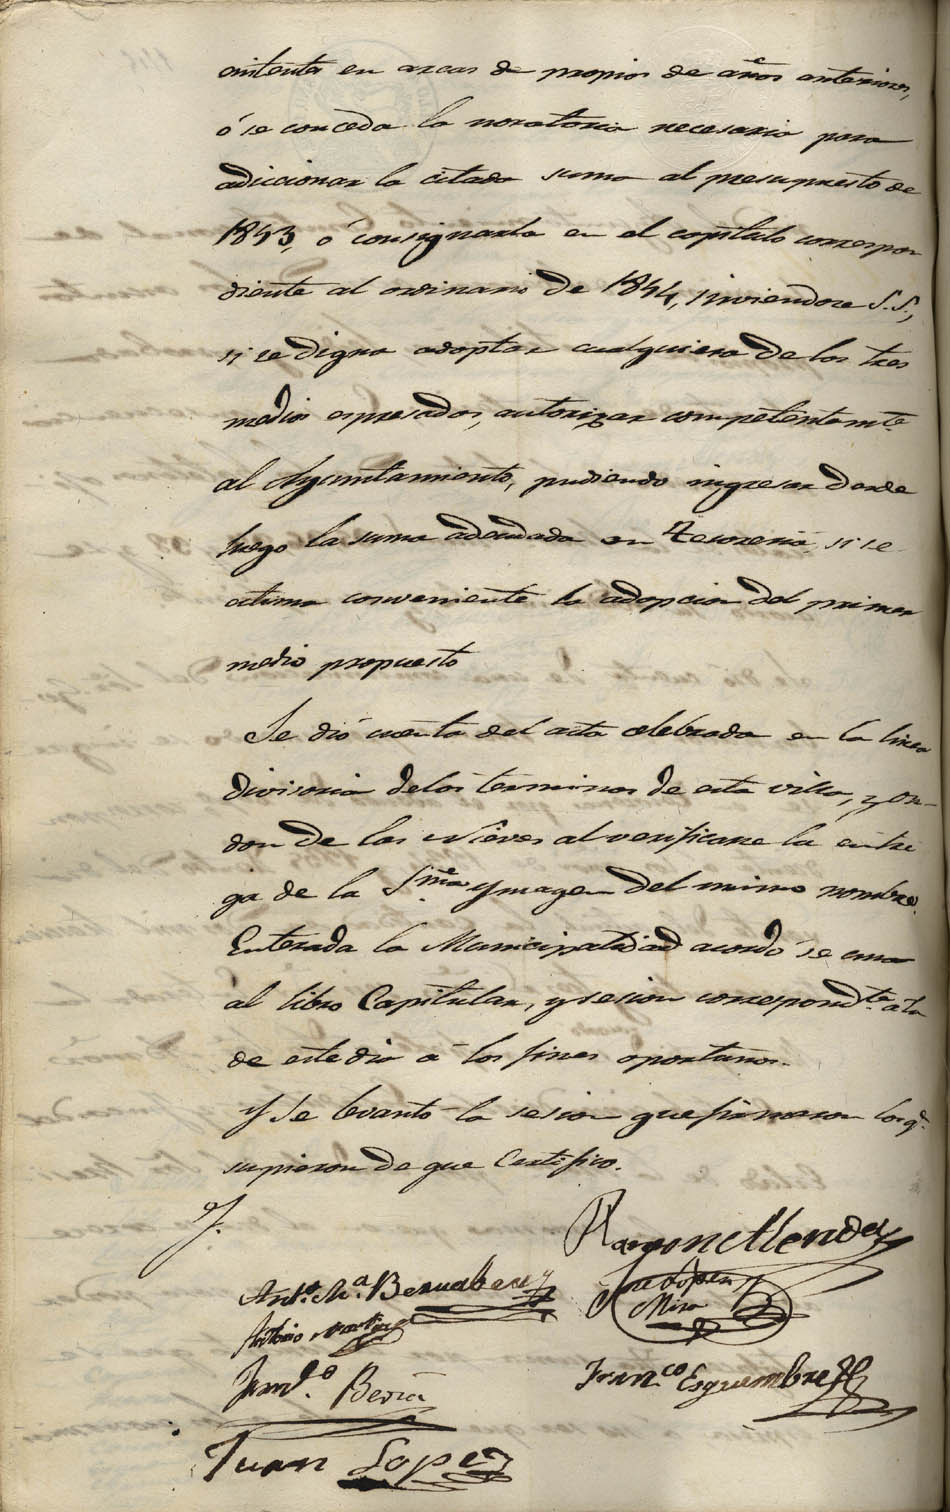 existente en arcas de propios de años anteriores,
ó se conceda la moratoria necesaria para
adiccionar la citada suma al presupuesto de
1843, ó consignarla en el capitulo correspon
diente al ordinario de 1844, sirviendose S.S.,
si se digna adoptar cualquiera de los tres
medios espresados, autorizar competentemte
al Ayuntamiento, pudiendo ingresar desde
luego la suma adeudada en Tesoreria, si se
estima conveniente la adopcion del primer
medio propuesto
Se dió cuenta del acta celebrada en la linea
divisoria de los terminos de esta villa, y On-
don de las Nieves al verificarse la entre
ga de la Sma Ymagen del mismo nombre.
Enterada la Municipalidad acordó se una
al libro Capitular, y sesion correspondte a la
de este dia á los fines oportunos.
Y se levantó la sesion que firmaron los q.
supieron de que Certifico.
Ramon Mender
Anto. Ma. Bernabeu
Jose Lopez
Mira
Antonio Martinez
Franco Esguembre
Ferndo Beria
Juan Lopez